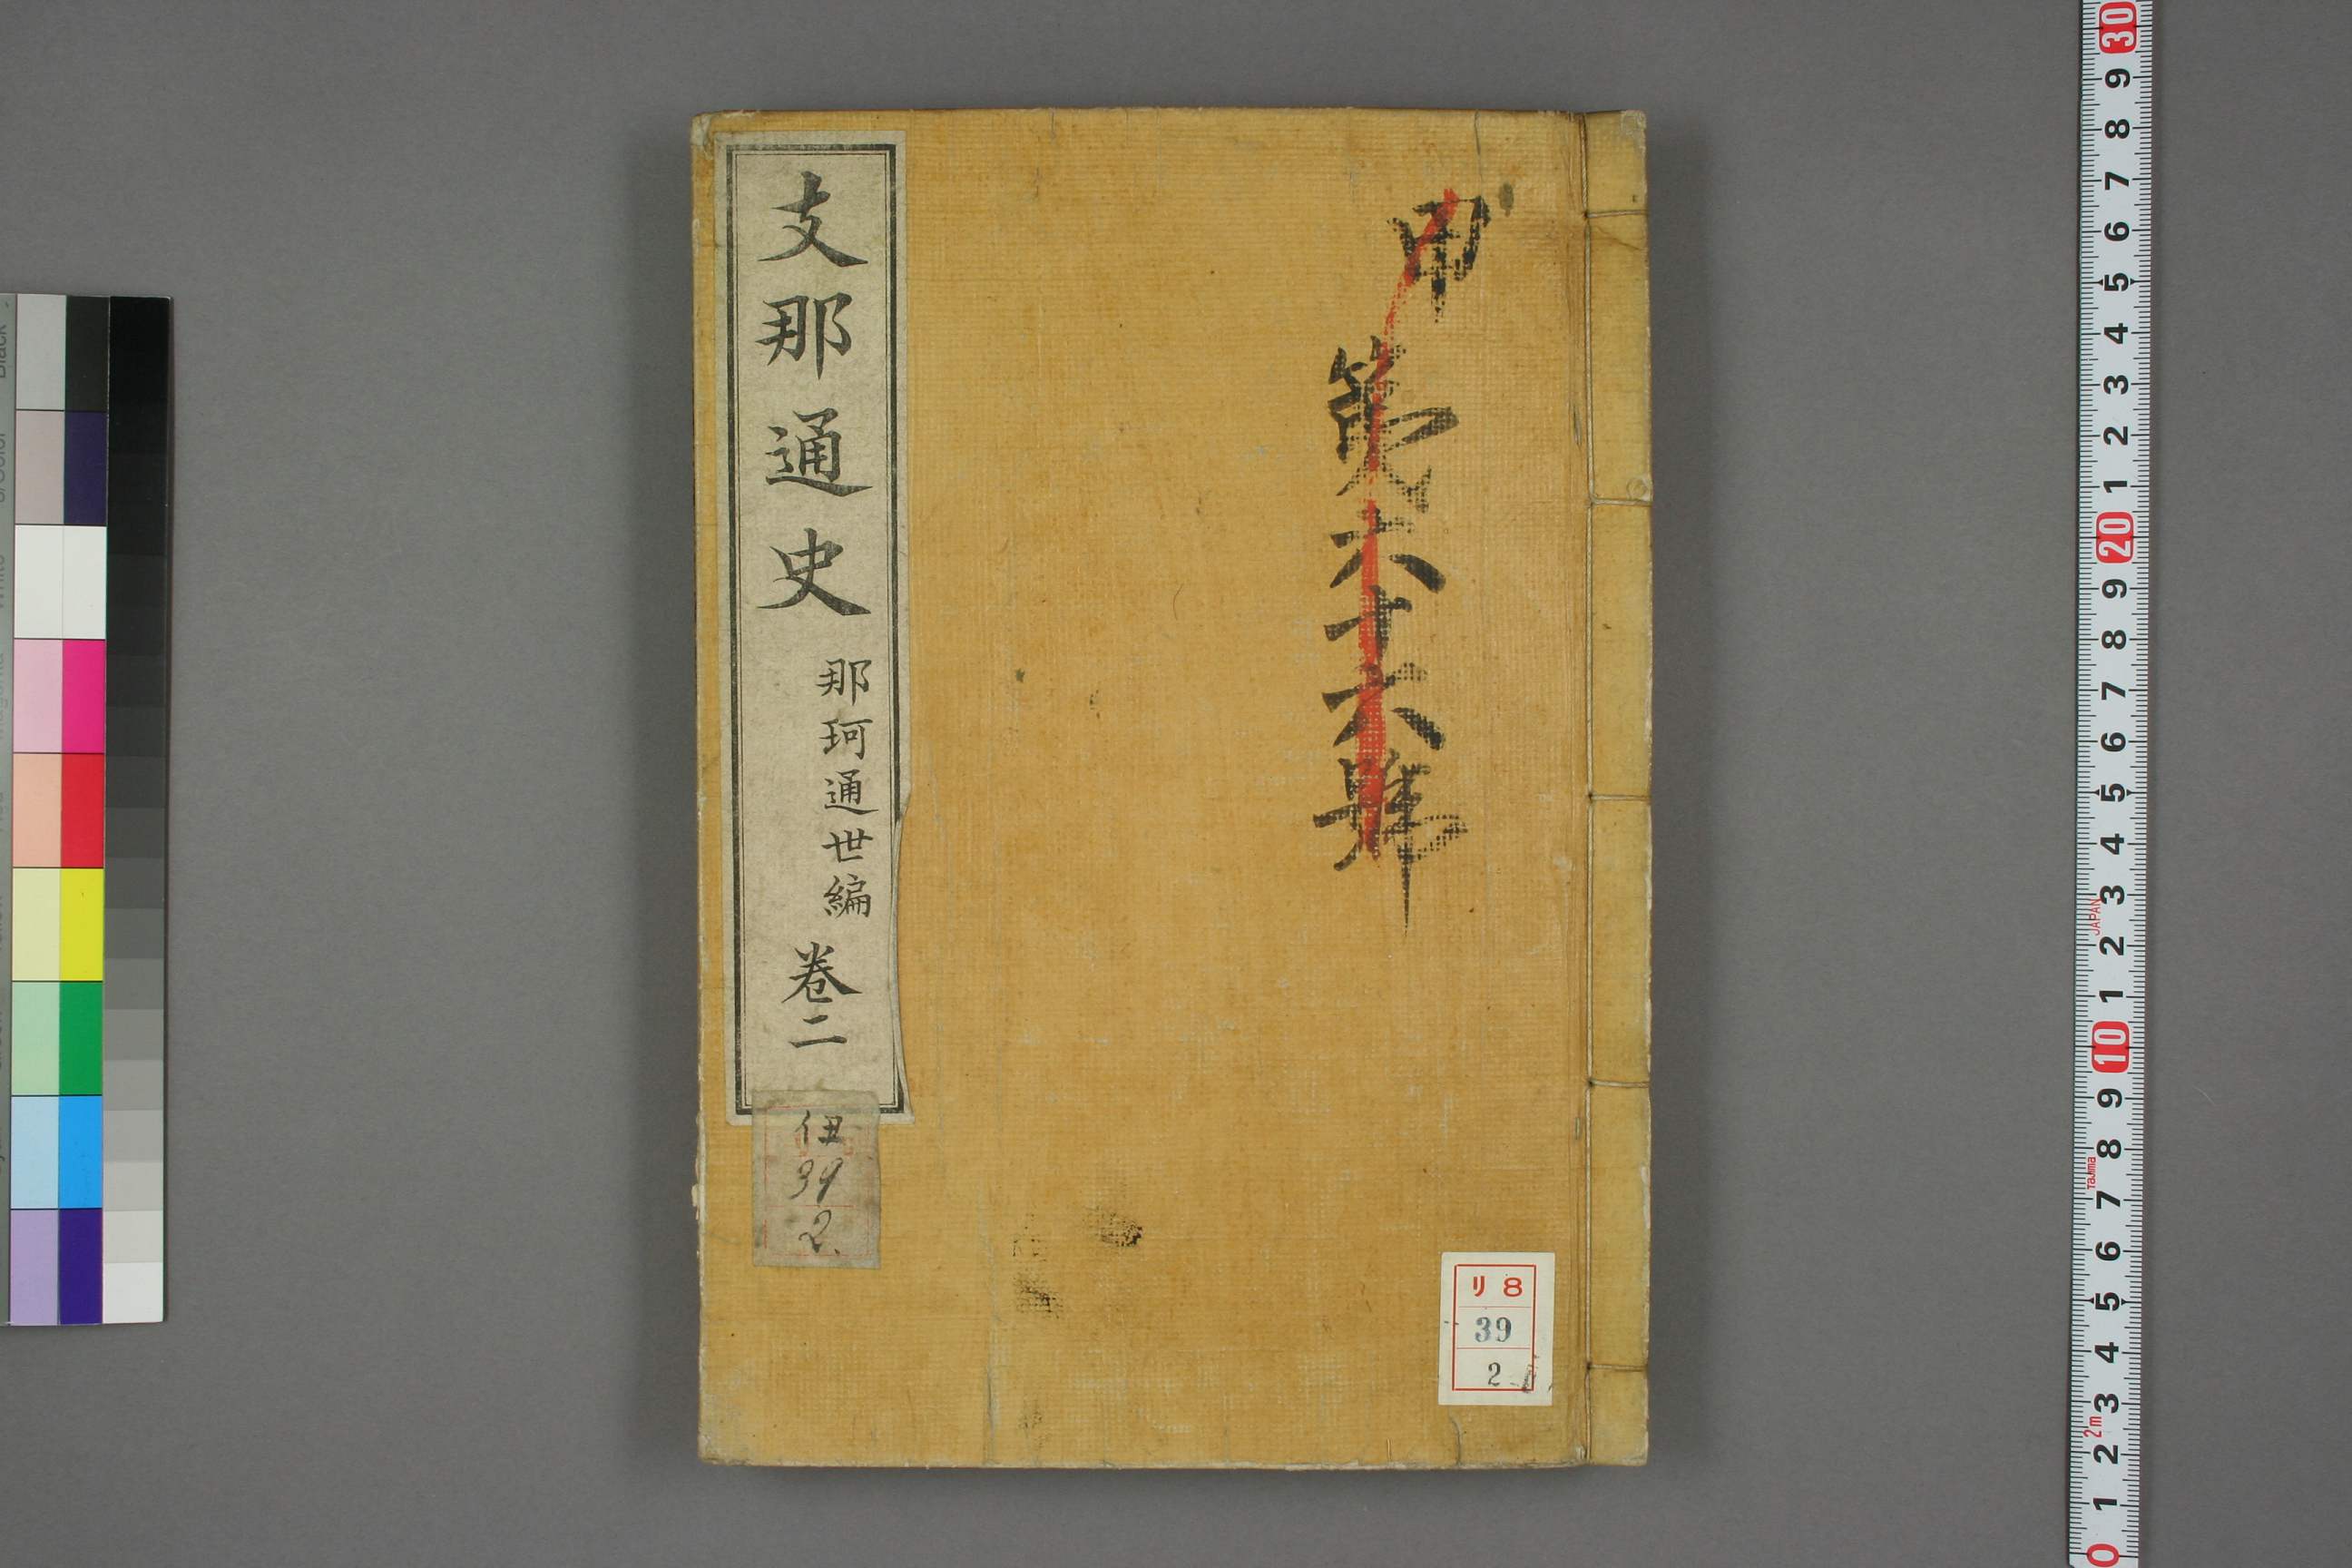 甲
第六十六號
支那通史
那珂通世編
卷二
伊
39
2.
リ8
39
2
30
9
8
7
6
5
4
3
2
1
20
9
8
7
6
5
4
3
JAPAN
2
1
10
9
8
Tajima
7
6
5
4
3
2m
2
1
0